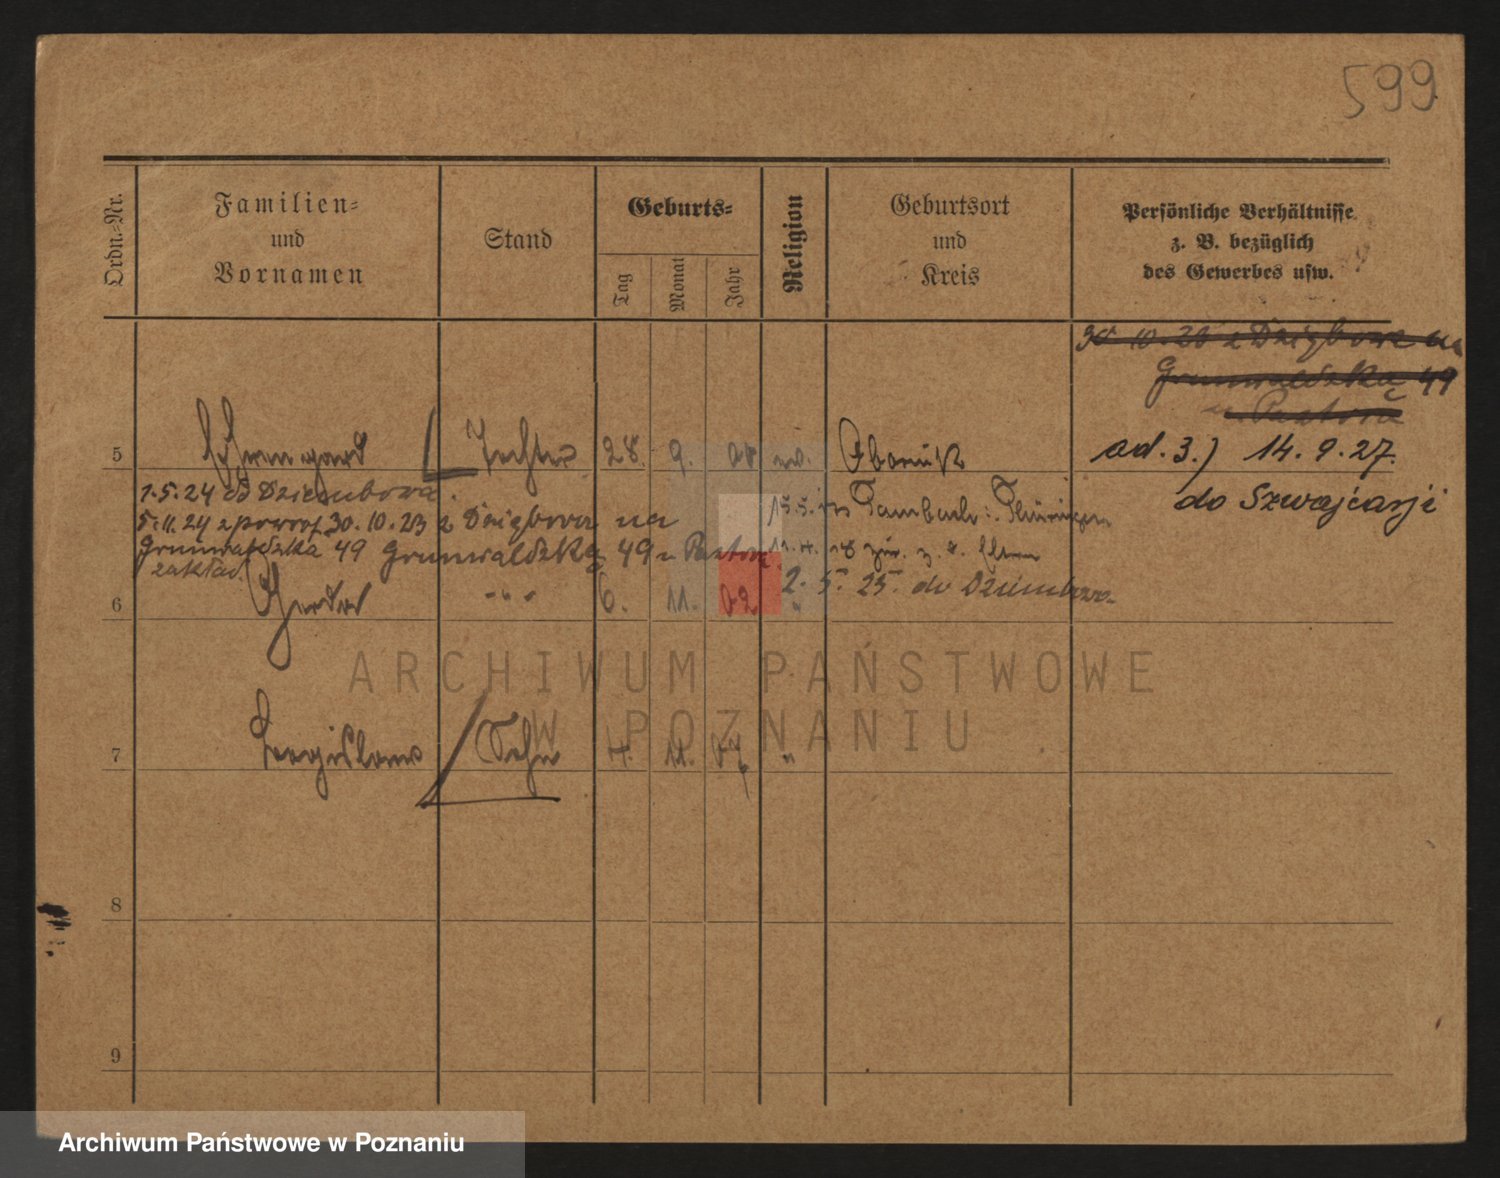 599
Ordn.-Nr.
Familien-
und
Vornamen
Stand
Geburts-
Tag
Monat
Jahr
Religion
Geburtsort
und
Kreis
Persönliche Verhältnisse
z. B. bezüglich
des Gewerbes usw.
30 10. 23 z Dziębowa na
Grunwaldzką 49
5 Irmgard Tochter 28. 9. 08 ev. Obornik
ad. 3.) 14. 9. 27.
do Szwajcarji
1. 5. 24 do Dziembowa.
5. 11. 24 z powrot. 30. 10. 23 z Dziębowa na
Grunwaldzka 49 Grunwaldzką 49
zakład.
15. 5. in Tambach i. Thüringen
11. 4. 18 zur. z. d. Eltern
2. 5. 25. do Dziembowo
6 Gerda " 6. 11. 02 "
7 Sohn 4. 11. 07 "
8
9
ARCHIWUM PAŃSTWOWE
W POZNANIU
Archiwum Państwowe w Poznaniu